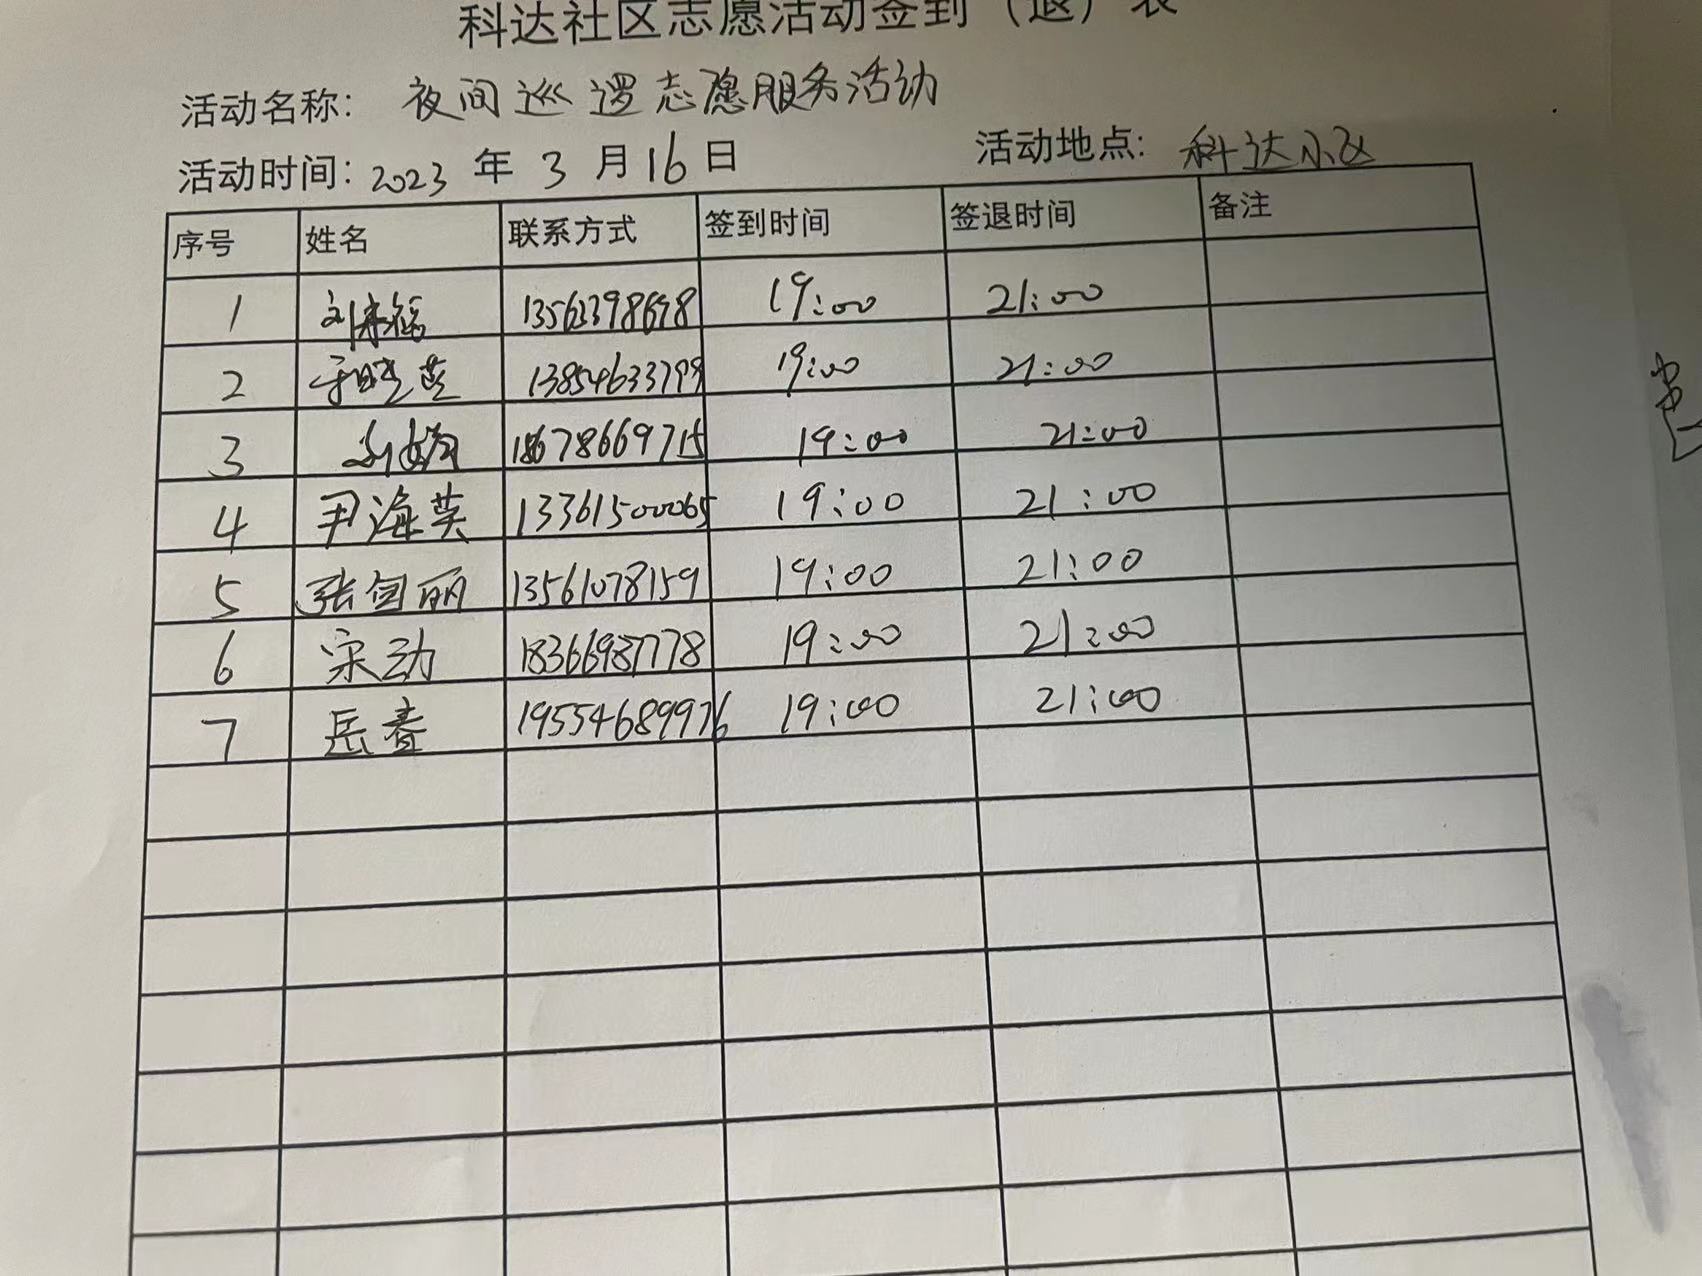 科达社区志愿活动签到（退）表
活动名称： 夜间巡逻志愿服务活动
活动时间：2023 年 3 月 16 日 活动地点: 科达小区
序号 姓名 联系方式 签到时间 签退时间 备注
1 19:00 21:00
2 19:00 21:00
3 18678669715 19:00 21:00
4 尹海英 13361500065 19:00 21:00
5 13561078159 19:00 21:00
6 宋动 19:00 21:00
7 岳春 19554689976 19:00 21:00